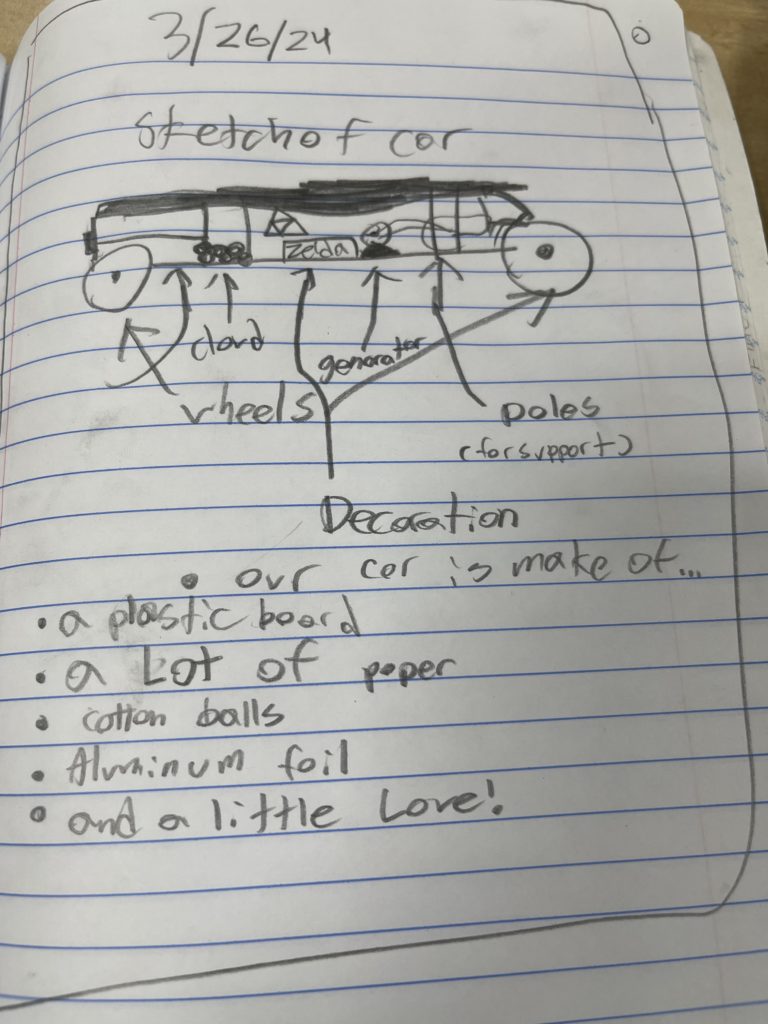 3/26/24
Sketch of car
Zelda
cloud
generator
wheels
poles
(for support)
Decoration
• our car is make of...
• a plastic board
• a Lot of paper
• cotton balls
• Aluminum foil
• and a little Love!